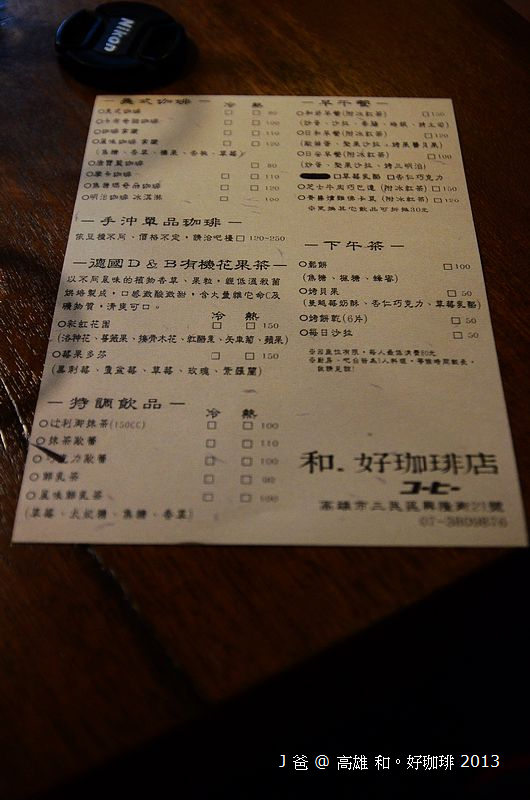 Nikon
義式咖啡
冷 熱
美式咖啡 80
卡布奇諾咖啡 100
咖啡拿鐵 100
風味咖啡拿鐵 120
(焦糖、香草、榛果、杏桃、草莓)
康寶藍咖啡 80
摩卡咖啡 110
焦糖瑪奇朵咖啡 110
明治咖啡冰淇淋 100
手沖單品咖啡
依豆種不同、價格不定,請洽吧檯 120~250
德國D&B有機花果茶
以不同風味的植物香草、果粒,經低溫穀菌
烘焙製成,口感微酸微甜,含大量維它命C及
礦物質,清爽可口。
冷 熱
彩虹花園 150
莓果多芬 150
(黑刺莓、覆盆莓、草莓、玫瑰、紫羅蘭)
特調飲品
冷 熱
辻利御抹茶(150CC) 100
抹茶歐蕾 110
巧克力歐蕾 100
鮮乳茶 90
風味鮮乳茶 100
(草莓、太妃糖、焦糖、香草)
早午餐
和若早餐(附冰紅茶) 150
日和早餐(附冰紅茶) 120
日安早餐(附冰紅茶) 100
(炒蛋、堅果沙拉、烤三明治)
草莓乳酪 杏仁巧克力
芝士牛肉巧巴達(附冰紅茶) 150
青醬燻雞佛卡夏(附冰紅茶) 120
※更換其它飲品可折抵30元
下午茶
鬆餅 100
(焦糖、楓糖、蜂蜜)
烤貝果 50
(蔓越莓奶酥、杏仁巧克力、草莓乳酪)
烤餅乾(6片) 50
每日沙拉 50
※因座位有限,每人最低消費80元
和.好珈琲店
コーヒー
高雄市三民區興隆街21號
07-3809876
J 爸 @ 高雄 和。好珈琲 2013